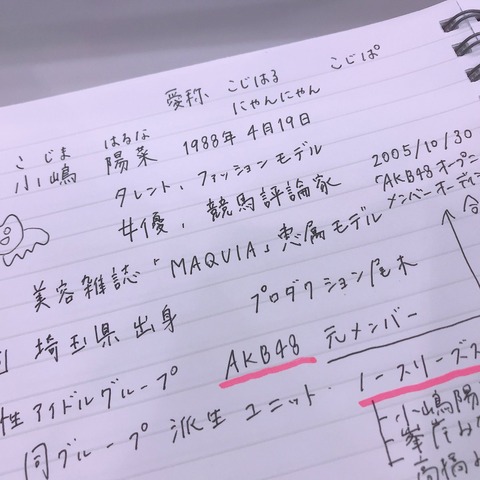 愛称、こじはる　こじぱ
にゃんにゃん
こじま　はるな
小嶋　陽菜　1988年 4月19日
タレント、ファッションモデル
女優、競馬評論家
2005/10/30
「AKB48オープニ
メンバーオーディ
美容雑誌「MAQUIA」専属モデル
合
プロダクション尾木
埼玉県出身
性アイドルグループ　AKB48　元メンバー
同グループ 派生ユニット・ノースリーブス
小嶋陽
峯岸み
高橋み